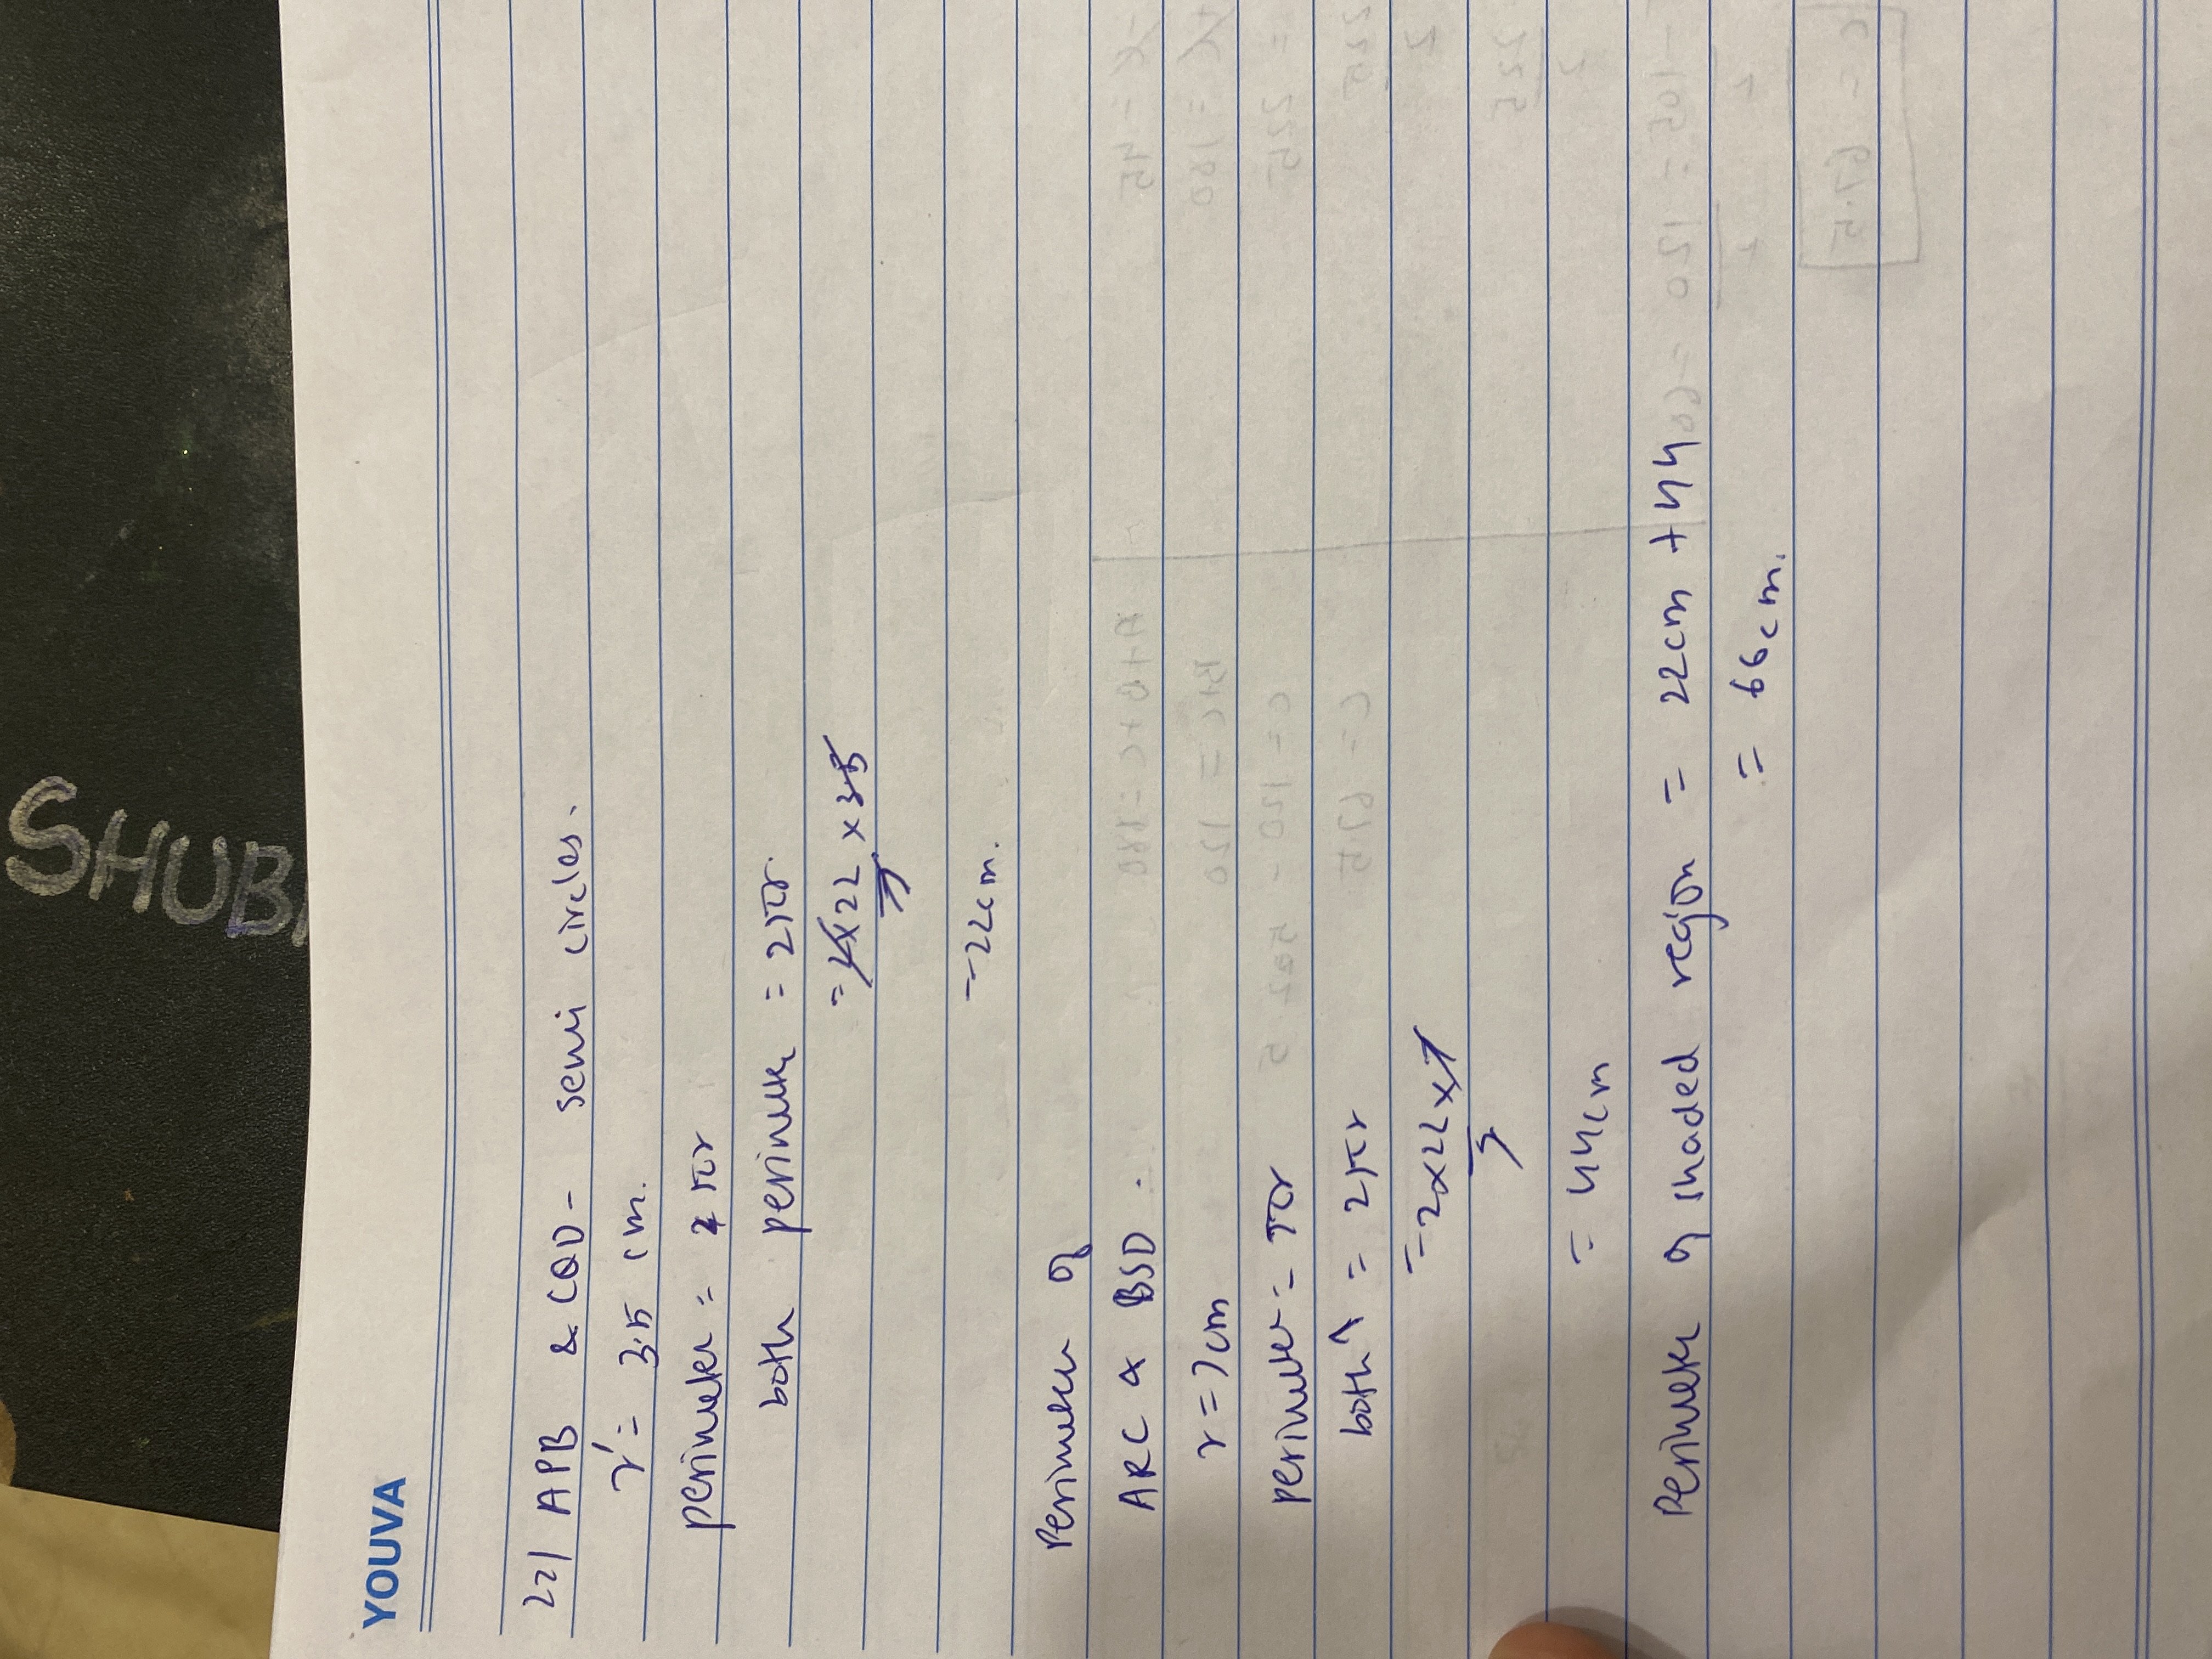 YOUVA
SHUB
22) APB & CQD - semi circles.
r' = 3.5 cm.
perimeter = πr
both perimeter = 2πr
= 2×22 × 3.5
7
= 22cm.
Perimeter of
ARC & BSD.
r = 7cm
perimeter = πr
both = 2πr
= 2×22×7
7
= 44cm
Perimeter of shaded region = 22cm + 44
= 66cm.